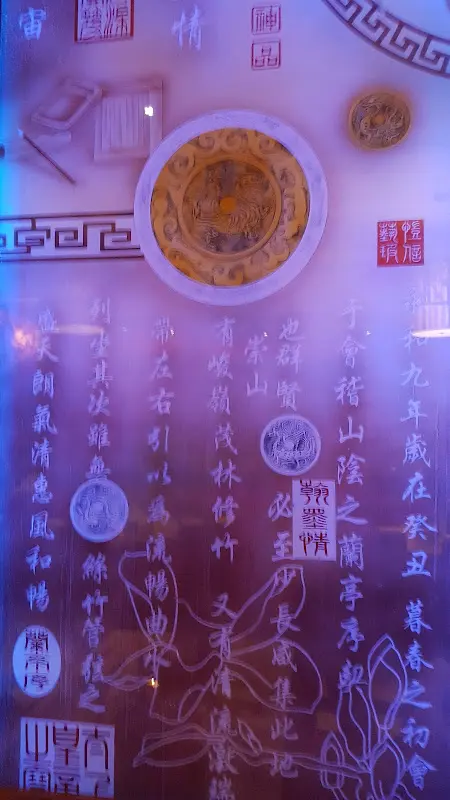 宙
情
神品
和九年歲在癸丑 暮春之初會
于會稽山陰之蘭亭序
也群賢 必至少長咸集此地
翰墨情
崇山
有峻嶺茂林修竹 又有清流激
帶左右引以為流暢曲水
列坐其次雖無 絲竹管絃之
天朗氣清惠風和暢
蘭亭序